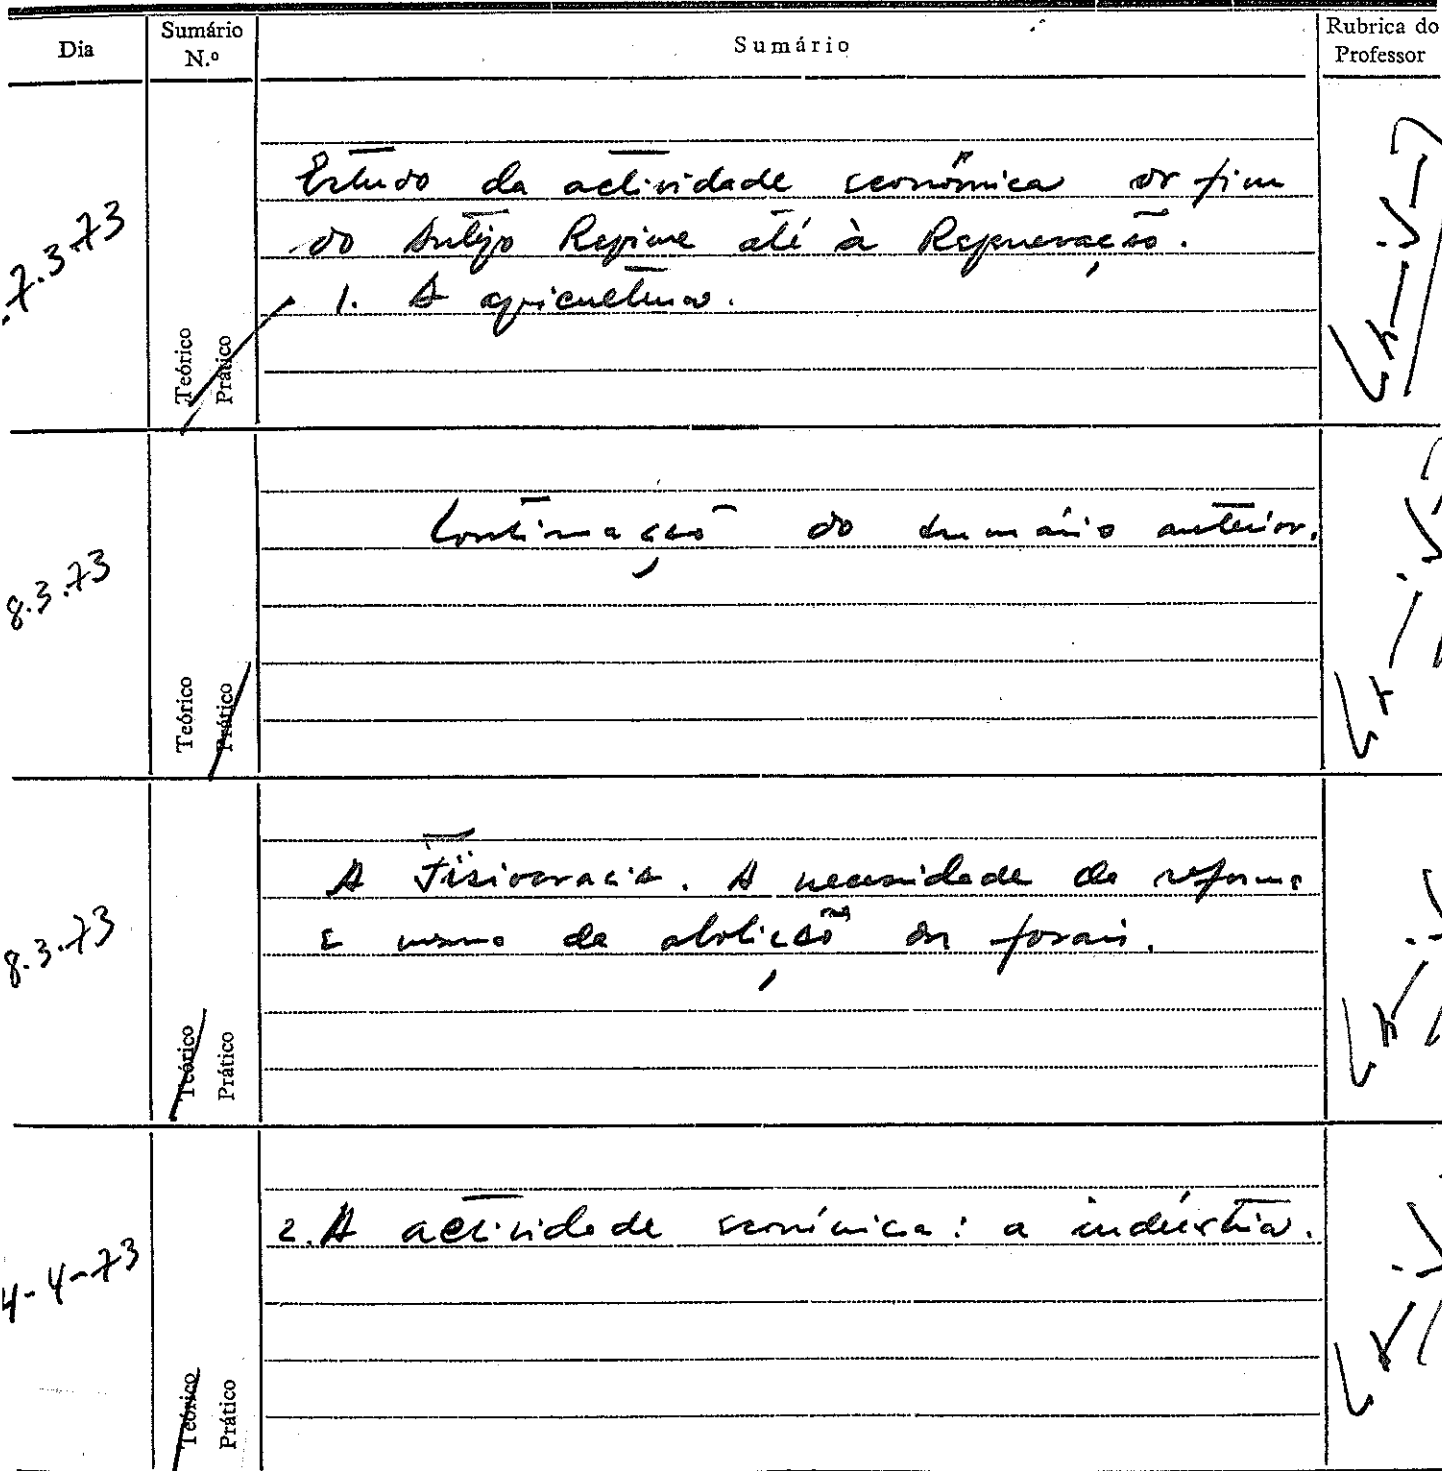 Dia
Sumário N.º
Sumário
Rubrica do Professor
7.3.73
Estudo da actividade económica do fim
do Antigo Regime até à Regeneração.
1. A agricultura.
Teórico
Prático
8.3.73
Continuação do sumário anterior.
Teórico
Prático
8.3.73
A Fisiocracia. A necessidade de reforma
e mesmo de abolição dos forais.
Teórico
Prático
4-4-73
2. A actividade económica: a indústria.
Teórico
Prático